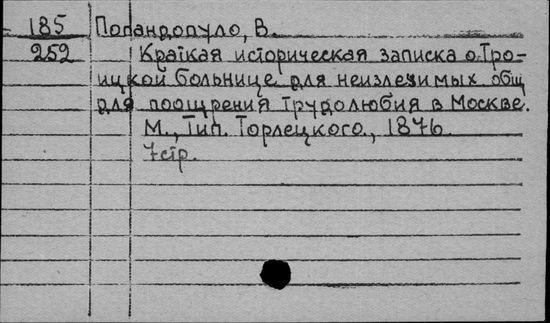 185 Попандопуло, В.
252 Краткая историческая записка о Тро-
ицкой больнице для неизлечимых общ
для поощрения трудолюбия в Москве.
М., Тип. Торлецкого., 1876.
7 стр.